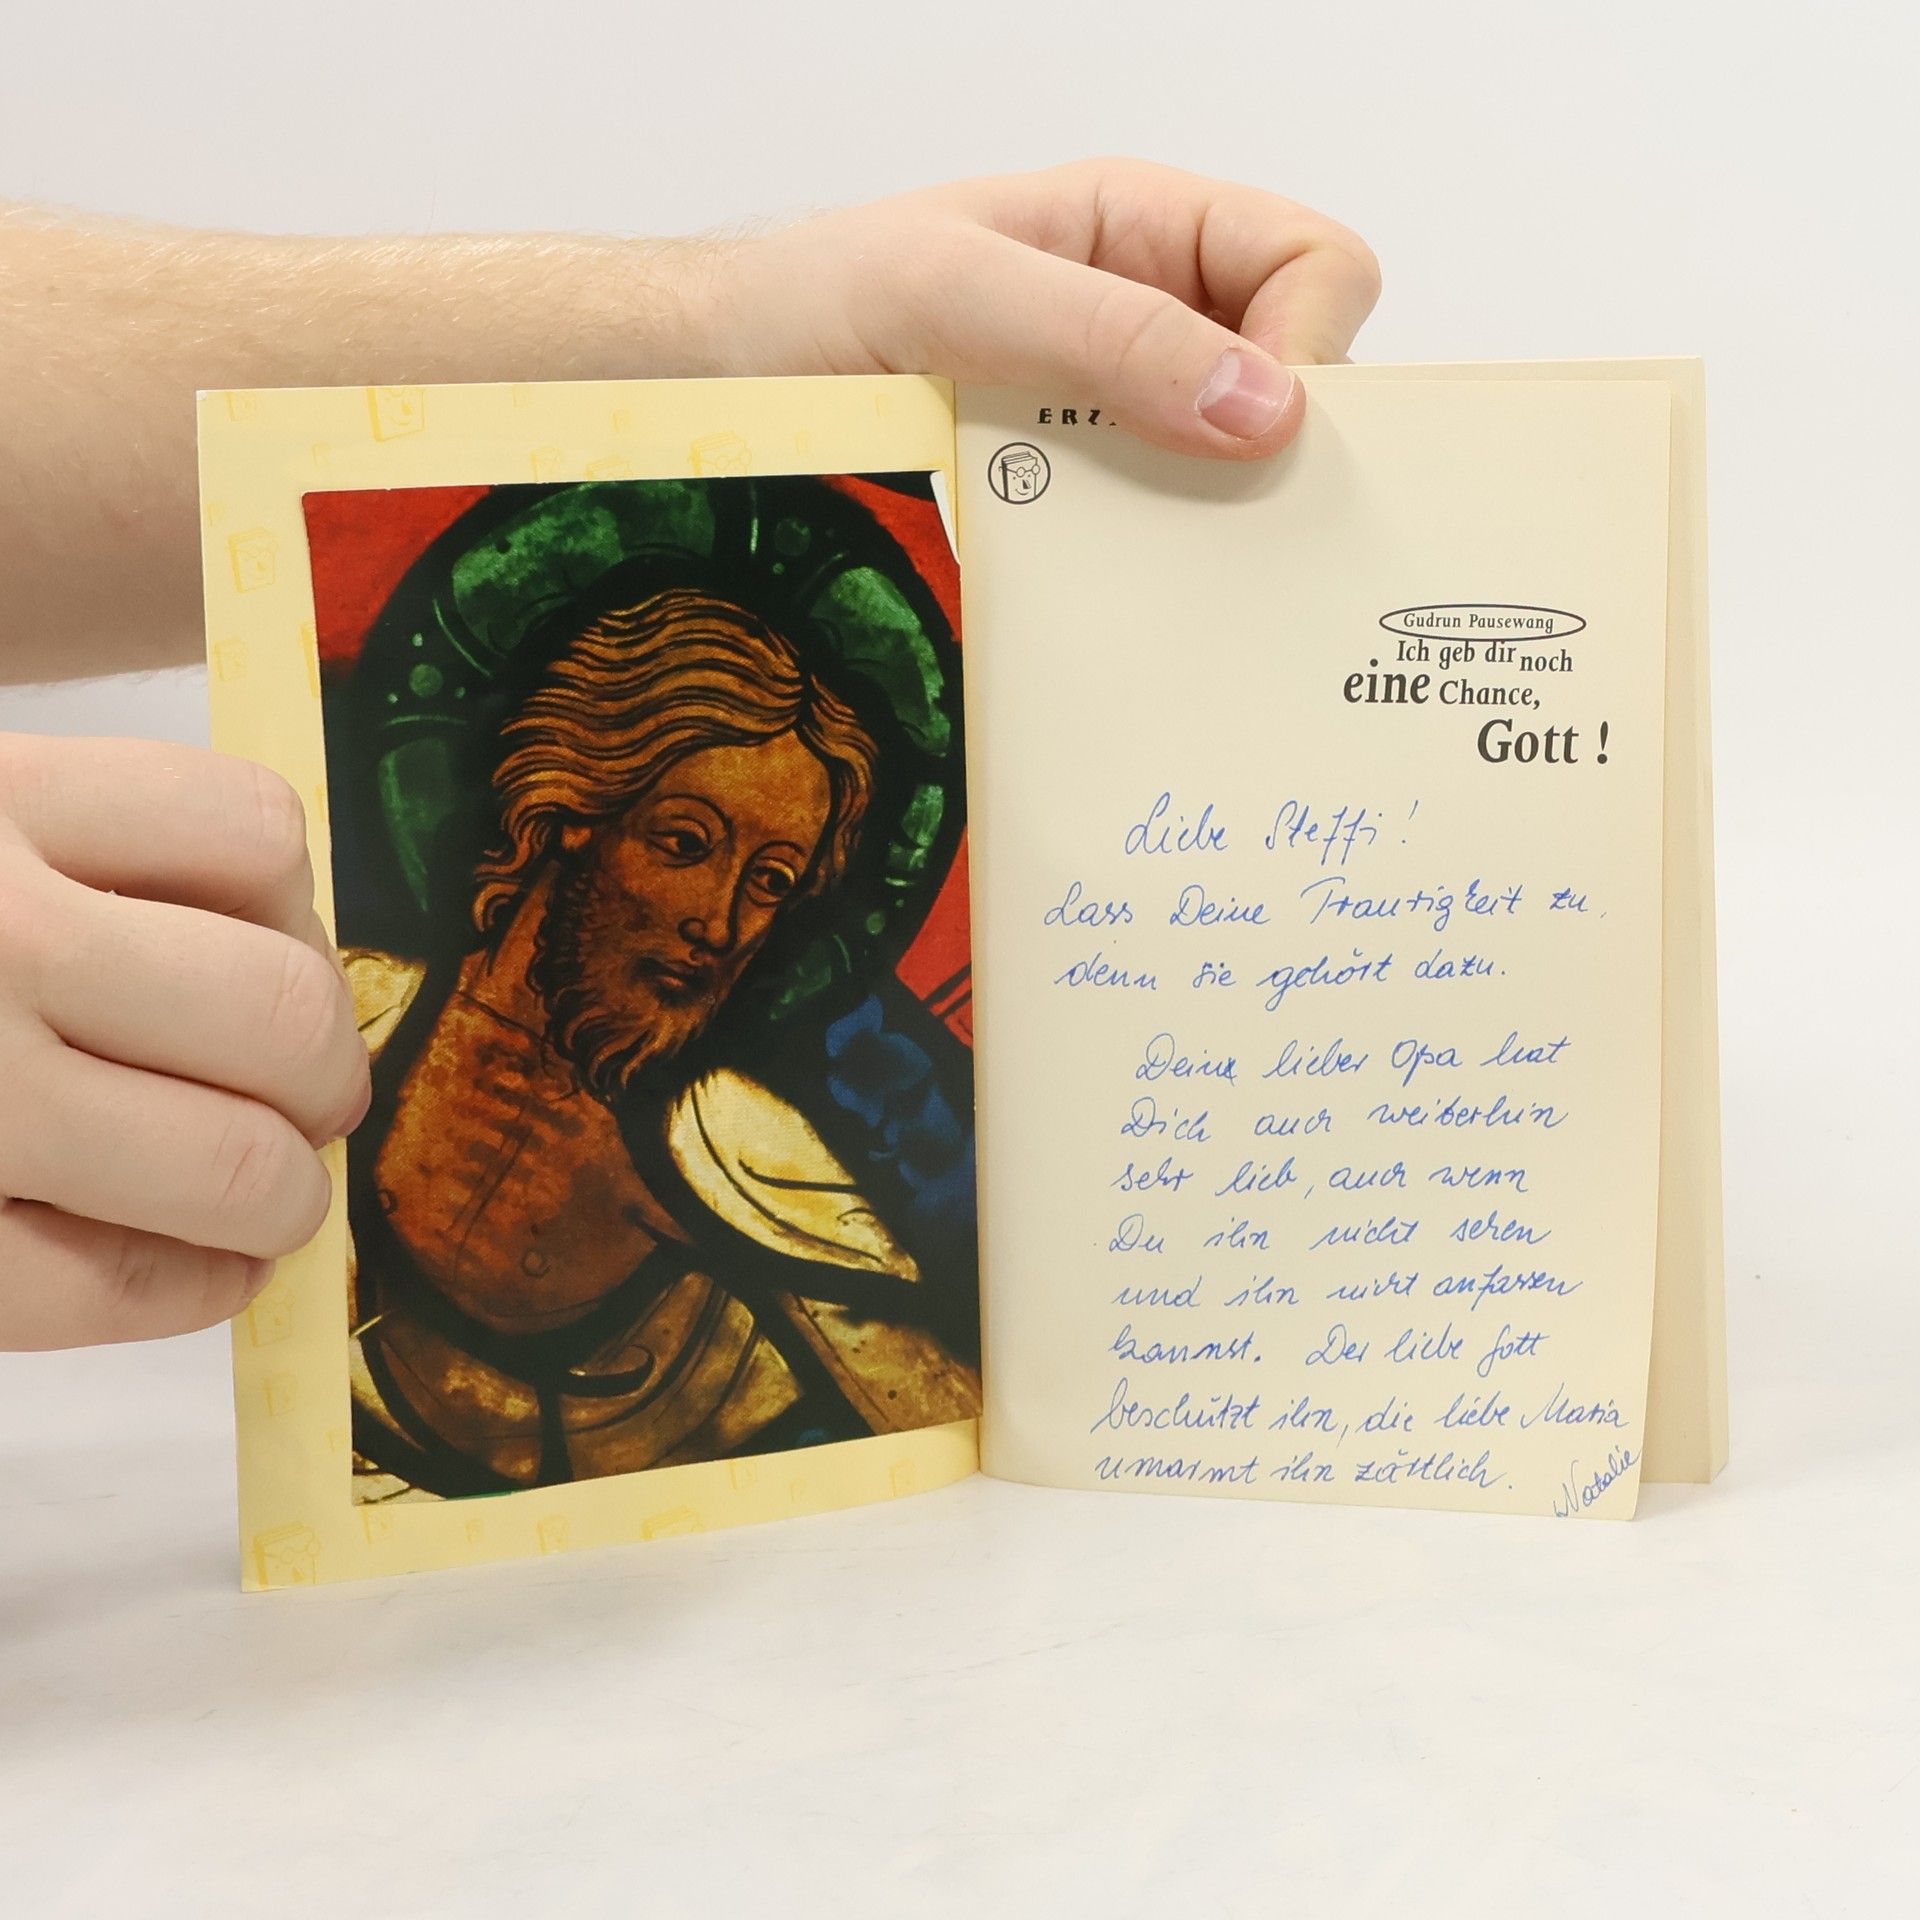 ERZ
Gudrun Pausewang
Ich geb dir noch
eine Chance,
Gott !
Liebe Steffi !
Lass Deine Traurigkeit zu,
denn sie gehört dazu.
Dein lieber Opa hat
Dich auch weiterhin
sehr lieb, auch wenn
Du ihn nicht sehen
und ihn nicht anfassen
kannst. Der liebe Gott
beschützt ihn, die liebe Maria
umarmt ihn zärtlich.
Natalie